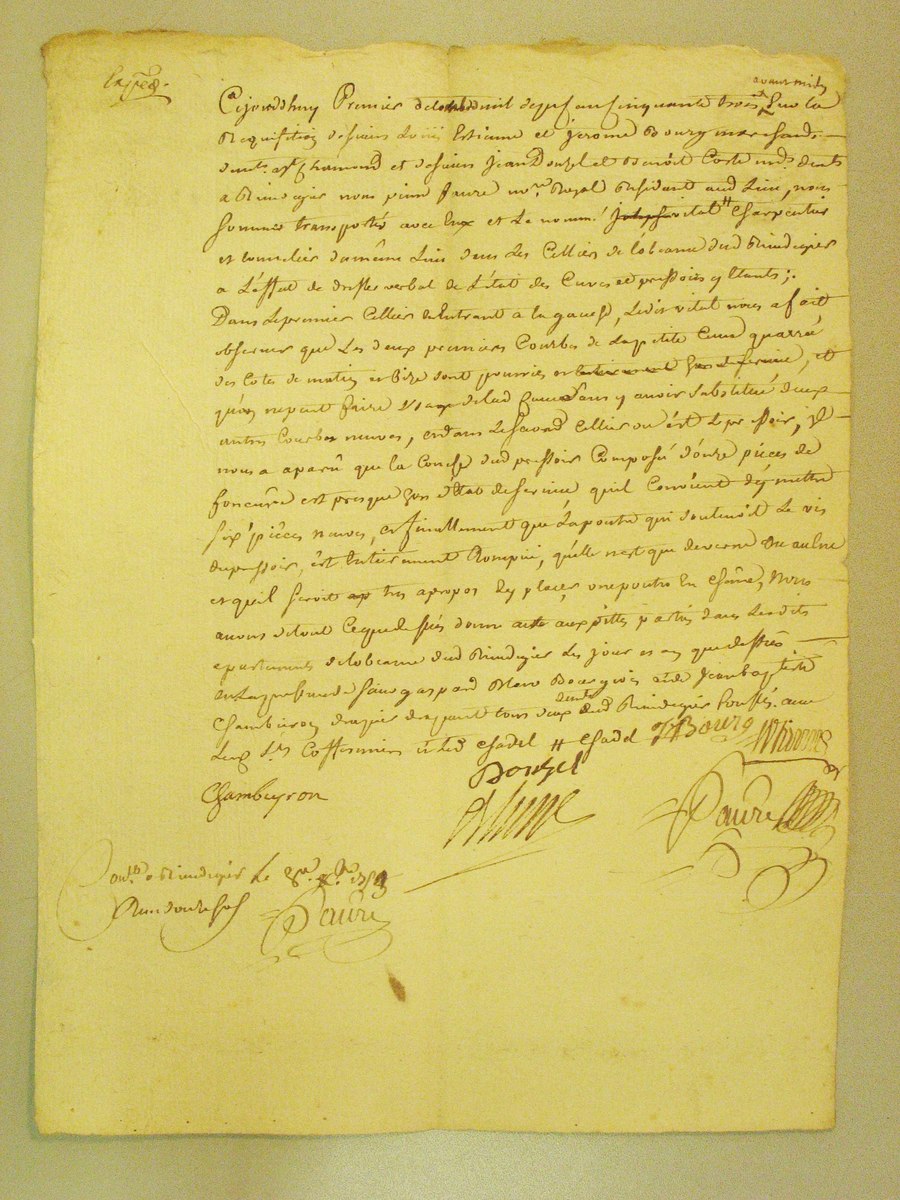 Expéd.
avant midy
Cejourdhuy Premier mil sept cent cinquante trois sur la
Requisition de sieurs Louis Estienne et Jerome Bourg marchands
st Chamond et de sieurs Jean Douzel et Benoit Coste
a Rivedegier nous faure nore Royal Residant aud Lieu, nous
sommes transportés avec Eux et Le nommé vital Charpentier
et du même Lieu dans Les Celliers de dud Rivedegier
a L'effet de dresser verbal de L'état des Cuves et pressoirs y Etants;
Dans Le premier Cellier En Entrant à la gauche, Ledit vital nous a fait
observer que Les deux premieres Courbes de La petite Cuve quarré
des Cotés de matin et Bize sont pourries et Entierement hors de service, et
qu'on ne peut faire usage de lad Cuve sans y avoir substitué deux
autres Courbes neuves, et dans Le second Cellier ou est Le pressoir, il
nous a aparû que la Conche dud pressoir Composé d'onze pièces de
fonçûre est presque hors d'état de service, quil Convient d'y mettre
six pièces neuves, et finallement que La poutre qui soutenoit Le vis
du pressoir, est Entierement Rompüe, qu'elle n'est que de verne ou aulne
et quil seroit tres apropos d'y placer une poutre En chêne, Nous
avons de tout Ce que dessus donné acte aux dittes parties dans Lesdits
apartements de dud Rivedegier Les jour et an que dessus
En La presence de sieur gaspard Bourgeois et de Jean baptiste
Chambeyron drapier drapant tous deux dud Rivedegier soussés. avec
Les Sts Douzel Bourg
Douzel
Chambeyron
Faure
Conllé a Rivedegier Le 8e. xbre 1753
Reçu douze sols
Faure